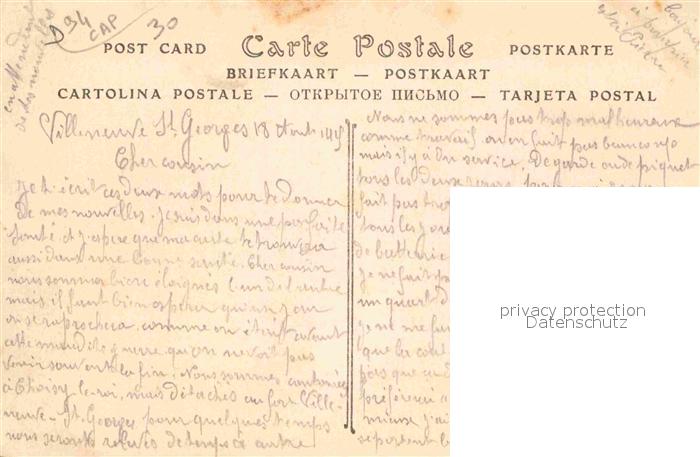 D 94
CAP
30
en attendant
de tes nouvelles
POST CARD Carte Postale POSTKARTE
BRIEFKAART — POSTKAART
CARTOLINA POSTALE — ОТКРЫТОЕ ПИСЬМО — TARJETA POSTAL
Villeneuve St Georges 18 Août 1915
Cher cousin
Je t'écrit ces deux mots pour te donner
de mes nouvelles. Je suis dans une parfaite
santé et j'espere que ma carte te trouvera
aussi dans une bonne santé. Cher cousin
nous sommes bien éloignés l'un de l'autre
mais il faut bien esperer qu'un jour
on se raprochera comme on étai avant
cette maudite guerre qu'on ne voit pas
venir souvent la fin. Nous sommes cantonnés
à Choisy-le-roi, mais détachés au fort Ville-
neuve-St. Georges pour quelques temps
nous serons relevés de temps à autre
Nous ne sommes pas trop malheureux
comme travail on en fait pas beaucoup
mais il y a du service. De garde ou de piquet
tous les deux jours
fait pas tro
tous les jo
de batterie
Je ne fait p
un quart d
je ne me
que la
pas que
préférence a
mieux j'ai
se portent
privacy protection
Datenschutz